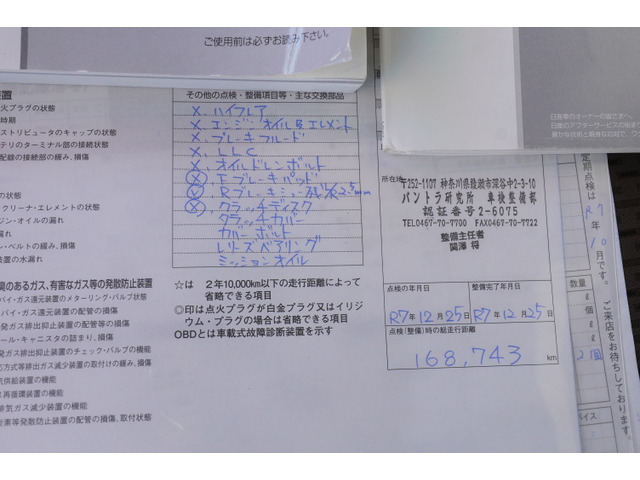 ご使用前は必ずお読み下さい。
日産車のオーナーの皆さまへ
その他の点検・整備項目等・主な交換部品
火プラグの状態
時期
ストリビュータのキャップの状態
テリのターミナル部の接続状態
配線の接続部の緩み、損傷
クリーナ・エレメントの状態
ジン・オイルの漏れ
の漏れ
ン・ベルトの緩み、損傷
装置の水漏れ
X、エンジンオイル&エレメント
X、ブレーキフルード
X、LLC
X、オイルドレンボルト
Ⓧ Fブレーキパッド
Ⓧ Rブレーキシュー残2.5mm
Ⓧ、クラッチディスク
クラッチカバー
カバーボルト
レリーズベアリング
ミッションオイル
所在地
〒252-1107 神奈川県綾瀬市深谷中2-3-10
パントラ研究所 車検整備部
認証番号2-6075
TEL0467-70-7700 FAX0467-70-7722
整備主任者
關澤 将
定期点検は
R7
10月です。
ご来店をお待ちしております。
数量
2個
臭のあるガス、有害なガス等の発散防止装置
バイ・ガス還元装置のメターリング・バルブ状態
バイ・ガス還元装置の配管の損傷
ール・キャニスタの詰まり、損傷
発ガス排出抑止装置のチェック・バルブの機能
応方式等排出ガス減少装置の取付けの緩み、損傷
気供給装置の機能
ス再循環装置の機能
排気ガス減少装置の機能
炭素等発散防止装置の配管の損傷、取付状態
☆は 2年10,000km以下の走行距離によって
省略できる項目
◎印は点火プラグが白金プラグ又はイリジ
ウム・プラグの場合は省略できる項目
OBDとは車載式故障診断装置を示す
点検の年月日
整備完了年月日
R7年12月25日
R7年12月25日
点検(整備)時の総走行距離
168,743 km